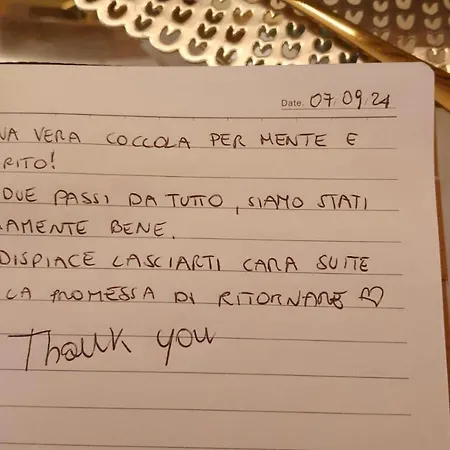 Date. 07 09 24
NA VERA COCCOLA PER MENTE E
RITO!
DUE PASSI DA TUTTO, SIAMO STATI
AMENTE BENE.
DISPIACE LASCIARTI CARA SUITE
LA PROMESSA DI RITORNARE ♡
Thank you